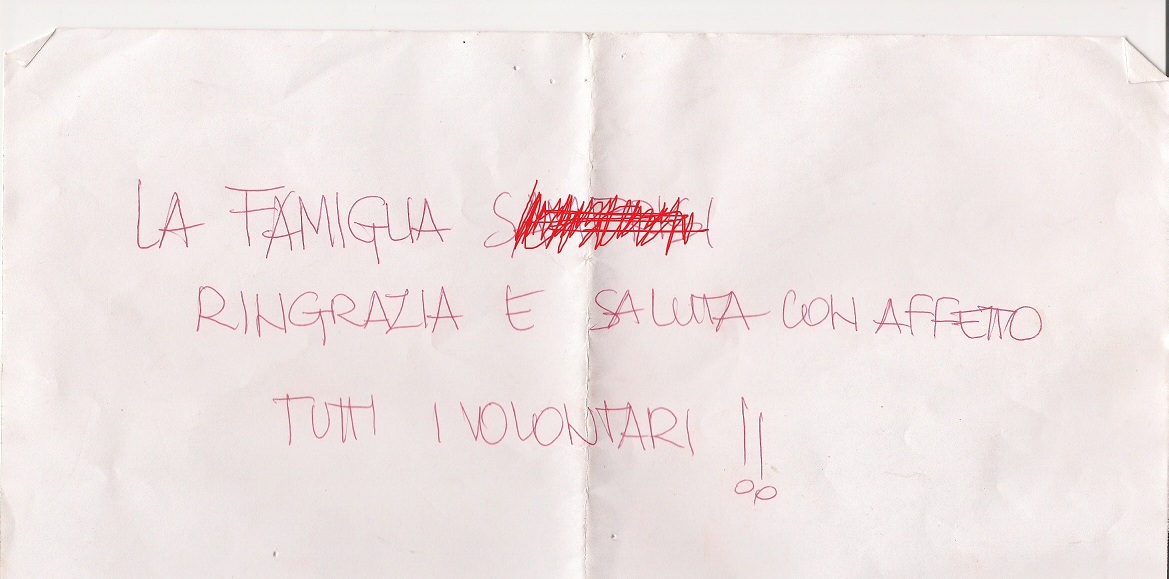 LA FAMIGLIA
RINGRAZIA E SALUTA CON AFFETTO
TUTTI I VOLONTARI !!